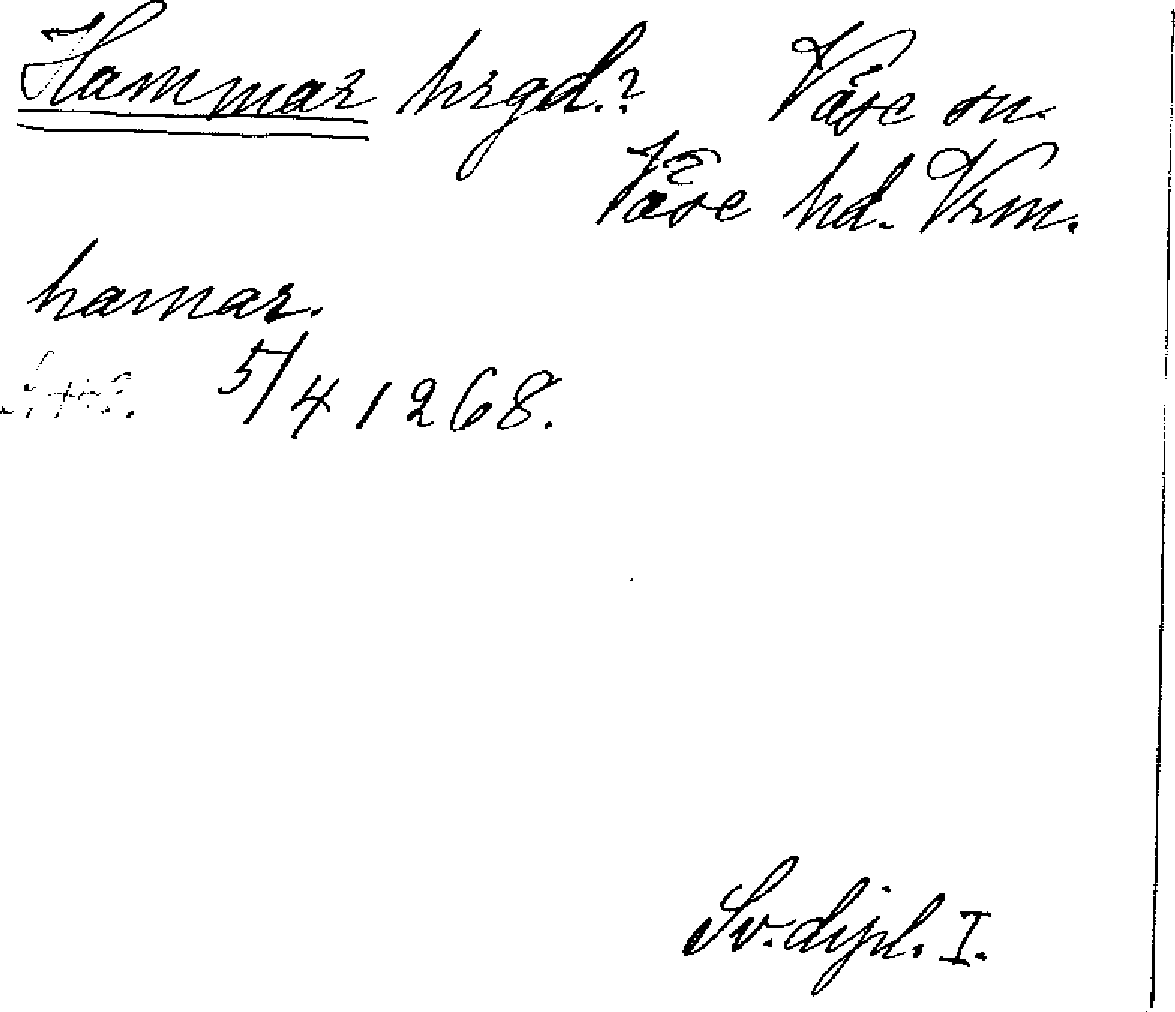 Hammar hrgd.? Väse sn.
Väse hd. Vrm.
hamar.
5/4 1268.
Sv. dipl. I.